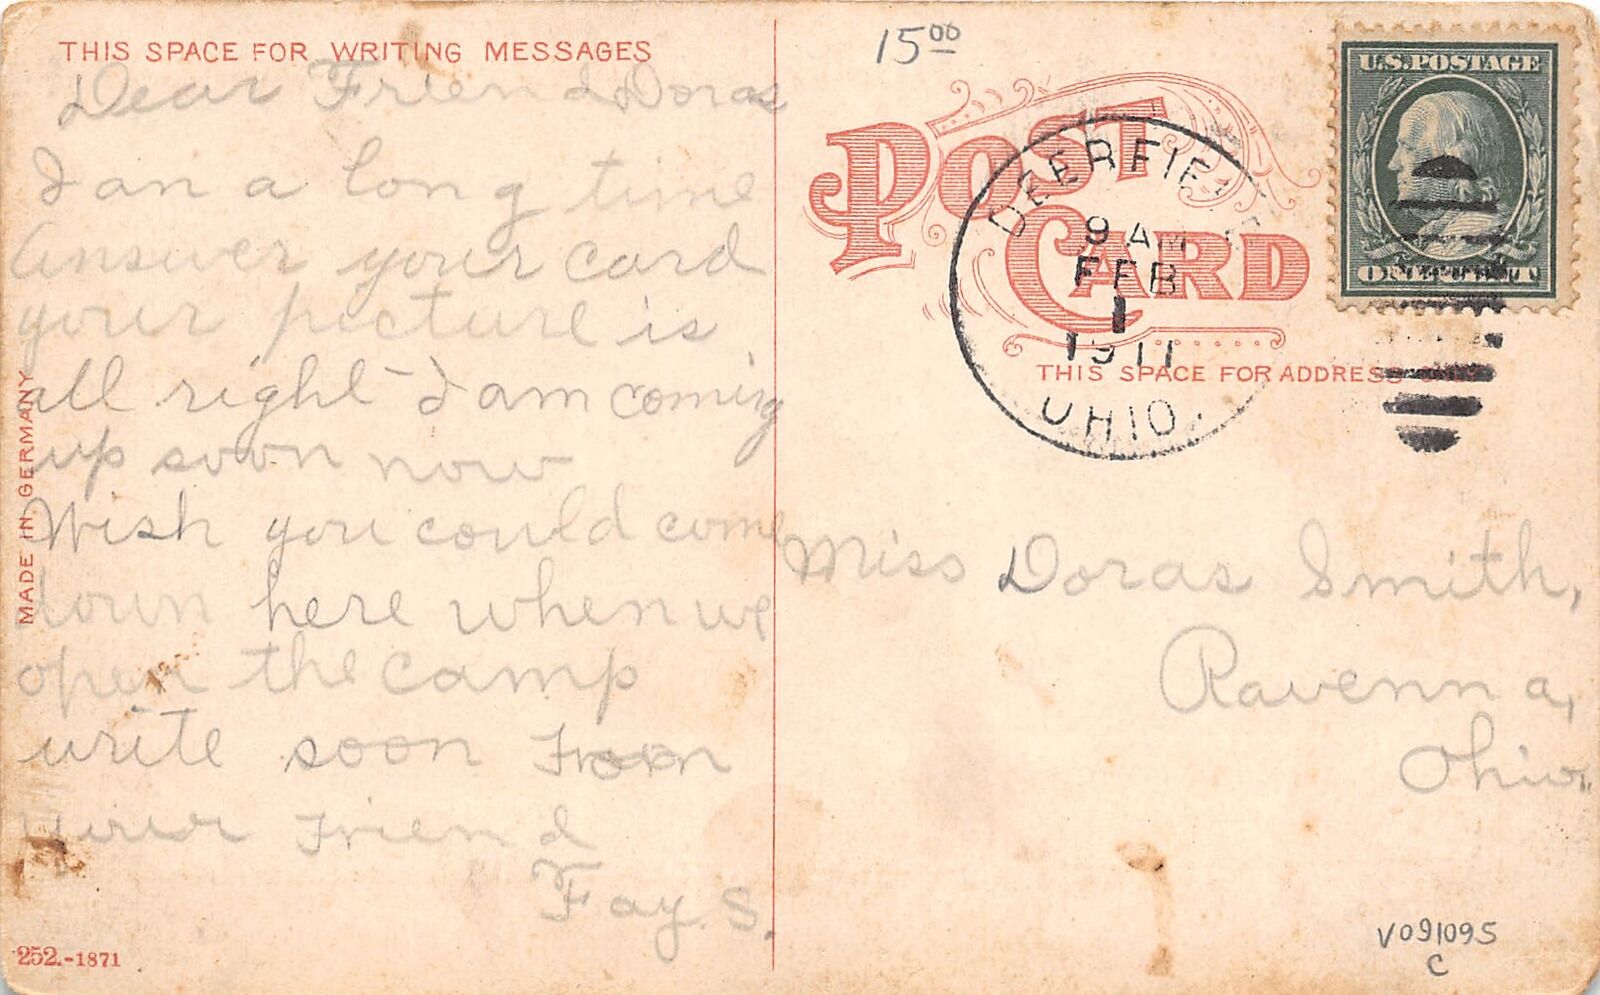 THIS SPACE FOR WRITING MESSAGES
Dear Friend Doras
I an a long time
answer your card
your picture is
all right I am coming
up soon now
Wish you could come
down here when we
open the camp
write soon From
your Friend
Fay. S.
MADE IN GERMANY
252.-1871
15 00
POST CARD
DEERFIELD
9 AM
FEB
1
1911
OHIO.
U.S. POSTAGE
ONE CENT
THIS SPACE FOR ADDRESS ONLY
Miss Doras Smith,
Ravenna,
Ohio.
V091095
C